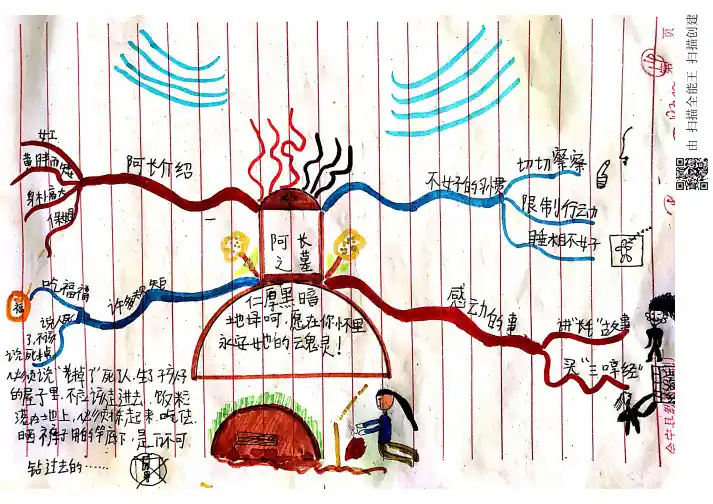 女工
黄胖而矮
身材高大
保姆
阿长介绍
不好的习惯
切切察察
限制行动
睡相不好
阿长
之墓
仁厚黑暗
地母呵,愿在你怀里
永安她的云鬼灵!
许多规矩
吃福橘
福
说人死
了,不该
说死掉
感动的事
讲"长毛"故事
买"三哼经"
必须说"老掉了"死人,生了孩子
的屋子里,不应该走进去,饭粒
落在地上,必须拣起来,吃下去
晒裤子用的竹竿底下,是万不可
钻过去的……
页
第
由 扫描全能王 扫描创建